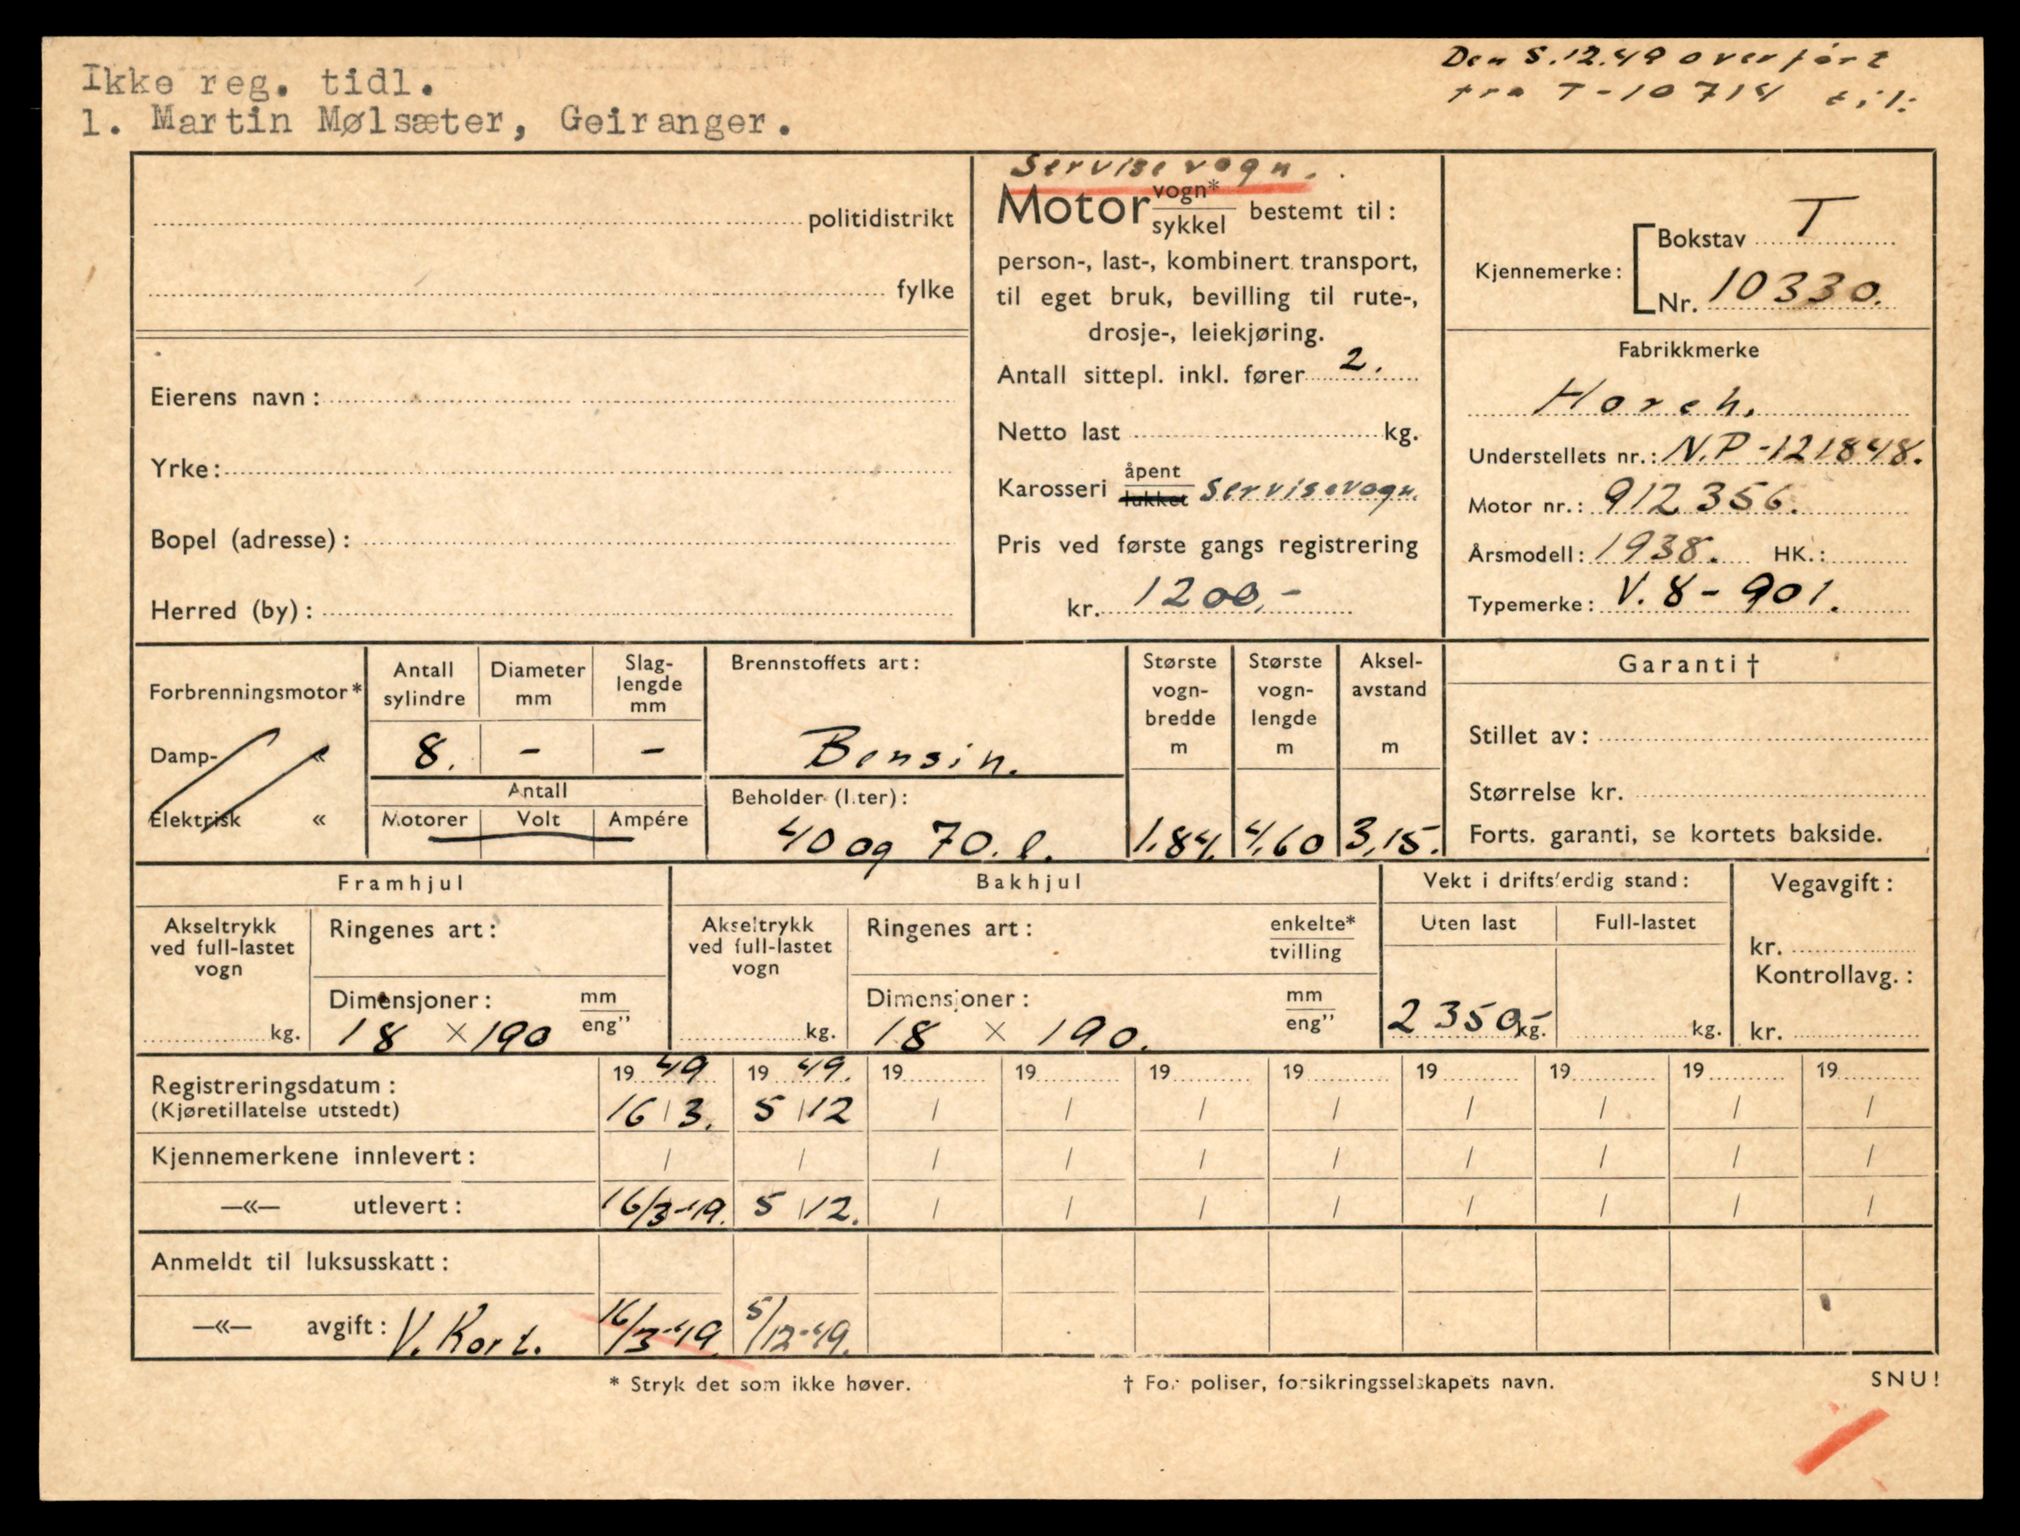 Ikke reg. tidl.
1. Martin Mølsæter, Geiranger.
Den 5.12.49 overført
fra T-10714 til:
politidistrikt
fylke
Eierens navn:
Yrke:
Bopel (adresse):
Herred (by):
Servisevogn.
Motor vogn*
sykkel bestemt til:
person-, last-, kombinert transport,
til eget bruk, bevilling til rute-,
drosje-, leiekjøring.
Antall sittepl. inkl. fører 2.
Netto last kg.
Karosseri åpent
lukket Servisevogn.
Pris ved første gangs registrering
kr. 1200,-
Kjennemerke: Bokstav T
Nr. 10330.
Fabrikkmerke
Horch.
Understellets nr.: N.P-121848.
Motor nr.: 912356.
Årsmodell: 1938. HK.:
Typemerke: V.8-901.
Forbrenningsmotor*
Damp- «
Elektrisk «
Antall sylindre
Diameter mm
Slag-lengde mm
8. - -
Antall
Motorer Volt Ampére
Brennstoffets art:
Bensin.
Beholder (l.ter):
40 og 70. l.
Største vogn-bredde m
Største vogn-lengde m
Aksel-avstand m
1.84. 4,60 3,15.
Garanti †
Stillet av:
Størrelse kr.
Forts. garanti, se kortets bakside.
Framhjul
Akseltrykk
ved full-lastet
vogn
kg.
Ringenes art:
Dimensjoner: mm
eng”
18 × 190
Bakhjul
Akseltrykk
ved full-lastet
vogn
kg.
Ringenes art: enkelte*
tvilling
Dimensjoner: mm
eng”
18 × 190.
Vekt i driftsferdig stand:
Uten last Full-lastet
2350 kg. kg.
Vegavgift:
kr.
Kontrollavg.:
kr.
19 49 19 49. 19 19 19 19 19 19 19 19
Registreringsdatum:
(Kjøretillatelse utstedt) 16/3. 5/12 / / / / / / / /
Kjennemerkene innlevert: / / / / / / / / / /
—«— utlevert: 16/3-49. 5/12. / / / / / / / /
Anmeldt til luksusskatt:
—«— avgift: V. Kort. 16/3-49. 5/12-49.
* Stryk det som ikke høver.
† For poliser, forsikringsselskapets navn.
SNU!